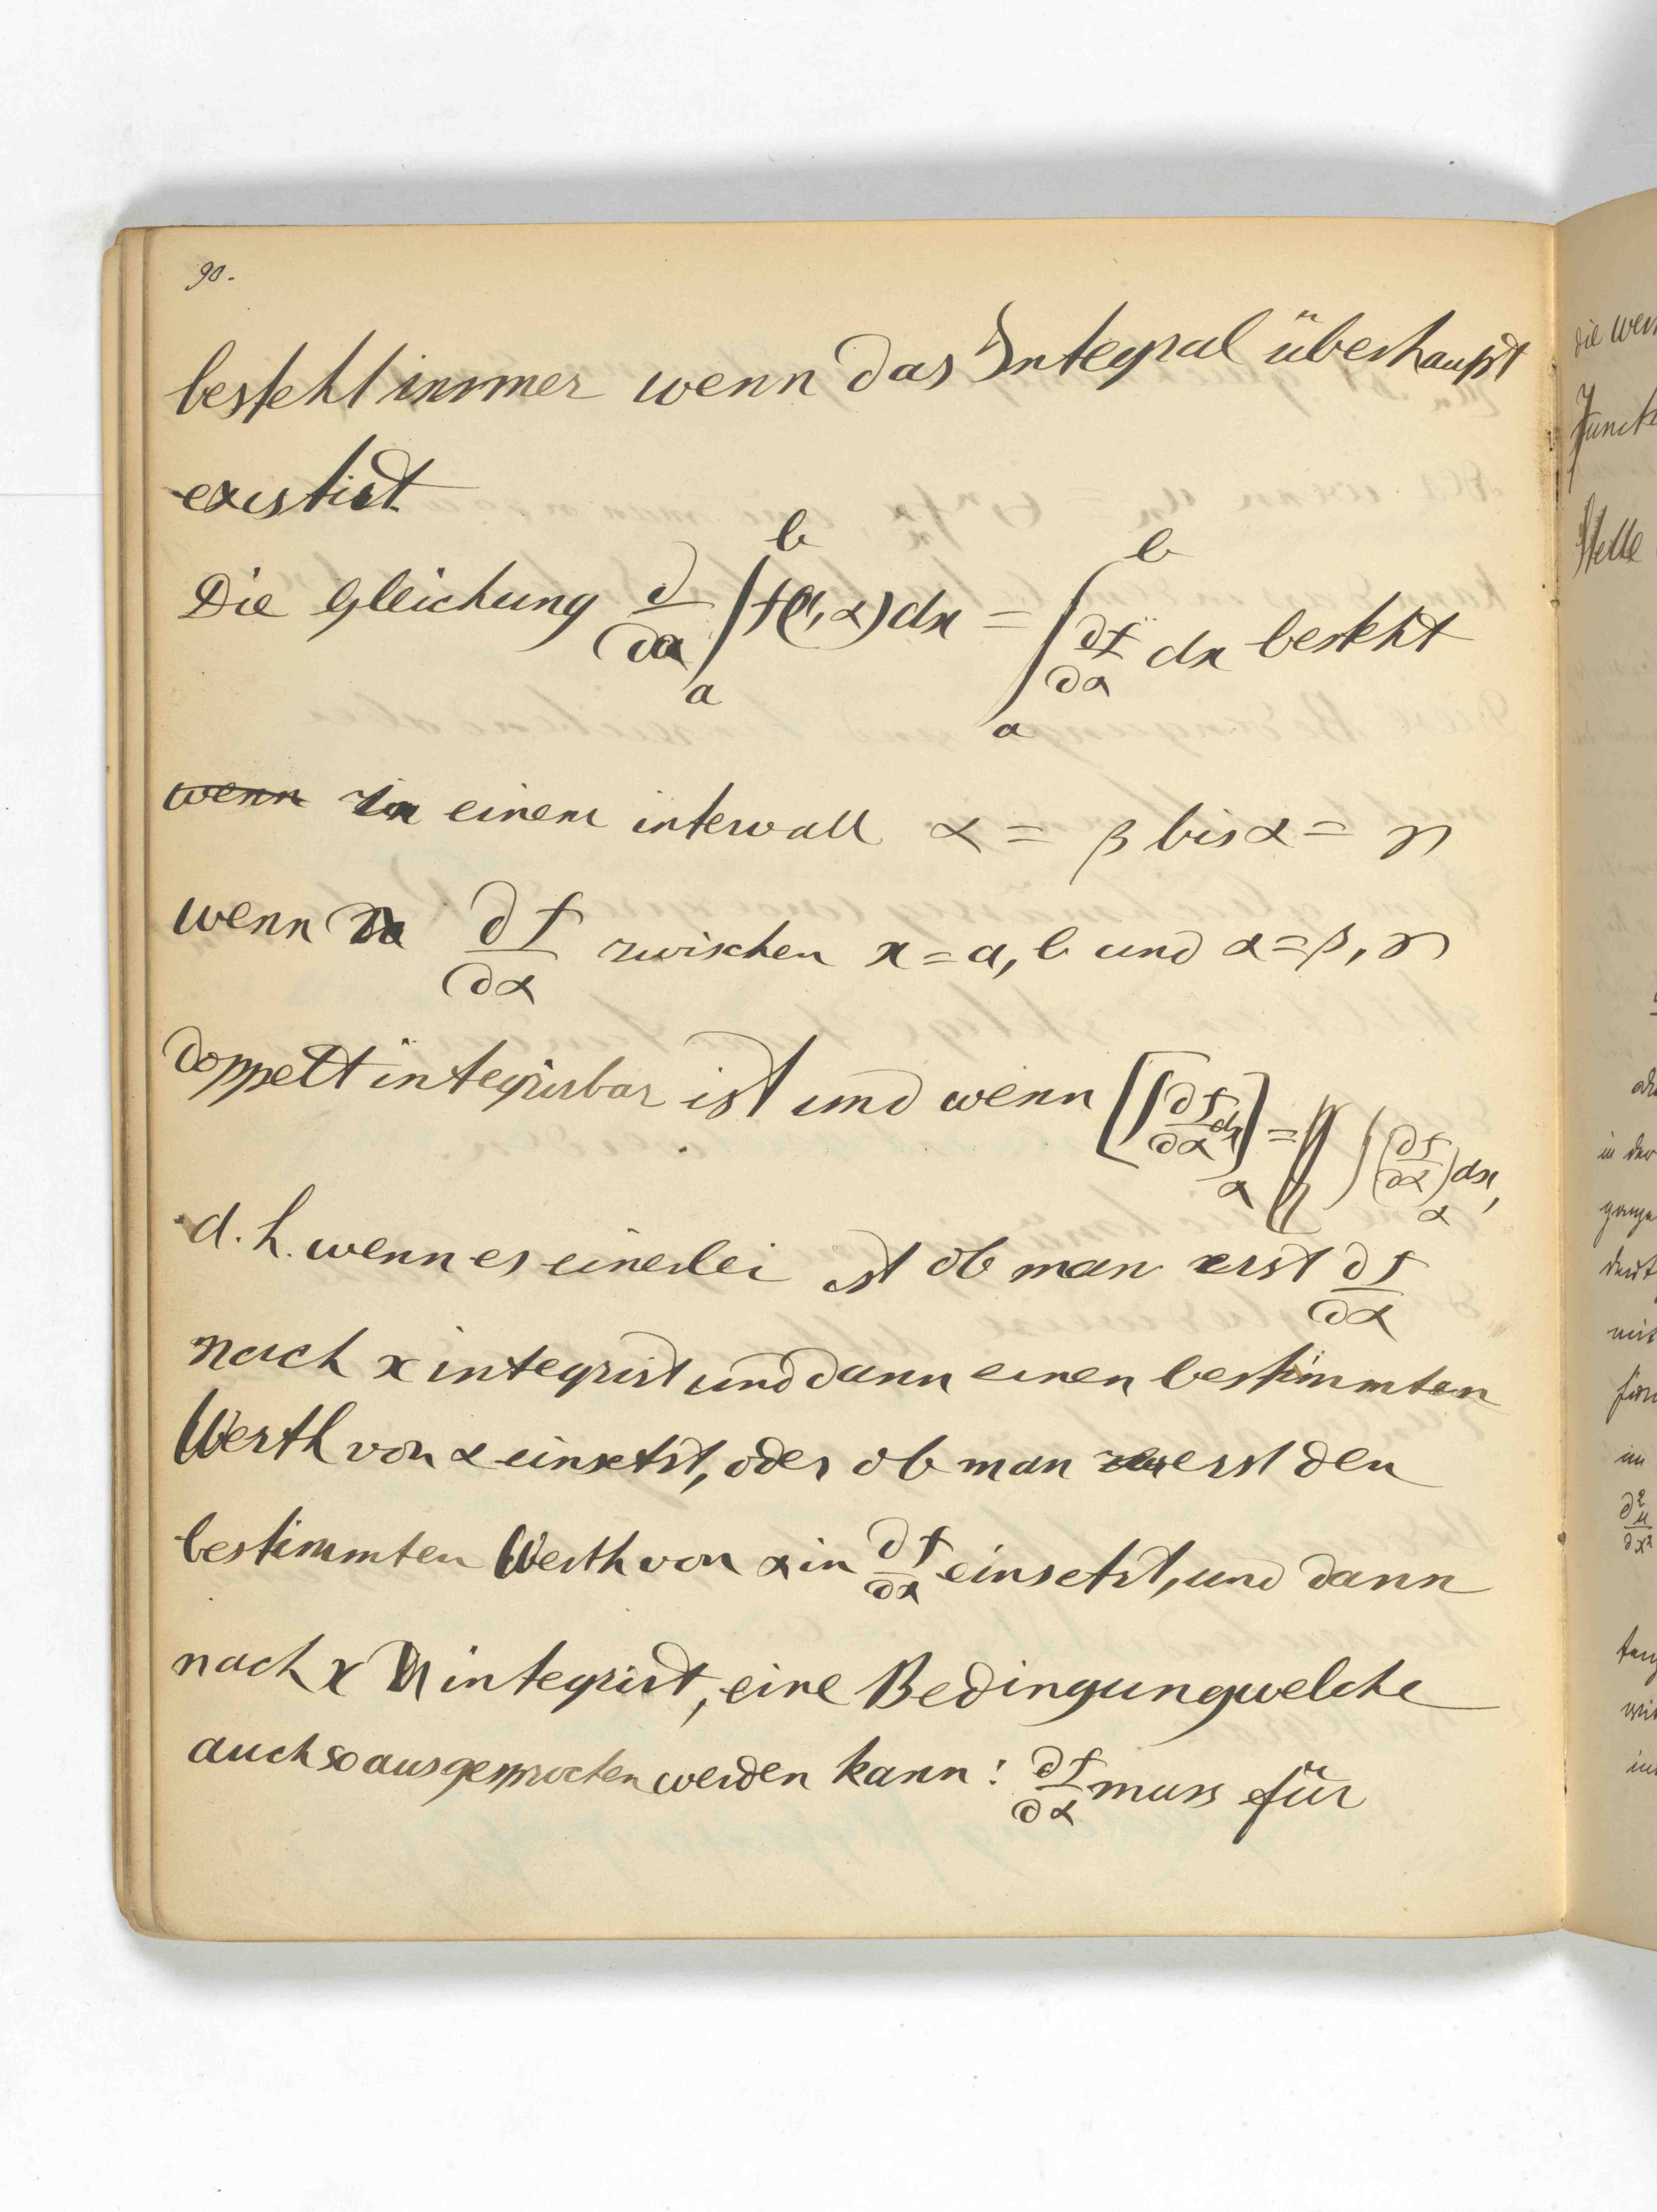 90.
besteht immer wenn das Integral überhaupt
existirt
Die Gleichung ∂/∂α ∫_a^b f(x, α) dx = ∫_a^b ∂f/∂α dx besteht
wenn in einem intervall α = β bis α = γ
wenn ∂f/∂α zwischen x = a, b und α = β, γ
doppelt integrirbar ist und wenn [∫ ∂f/∂α dx]_α = ∫ (∂f/∂α)_α dx,
d. h. wenn es einerlei ist ob man erst ∂f/∂α
nach x integrirt und dann einen bestimmten
Werth von α einsetzt, oder ob man erst den
bestimmten Werth von α in ∂f/∂α einsetzt, und dann
nach x integrirt, eine Bedingung welche
auch so ausgesprochen werden kann: ∂f/∂α muss für
die
Stelle
in der
mit
im
∂²u/∂x²